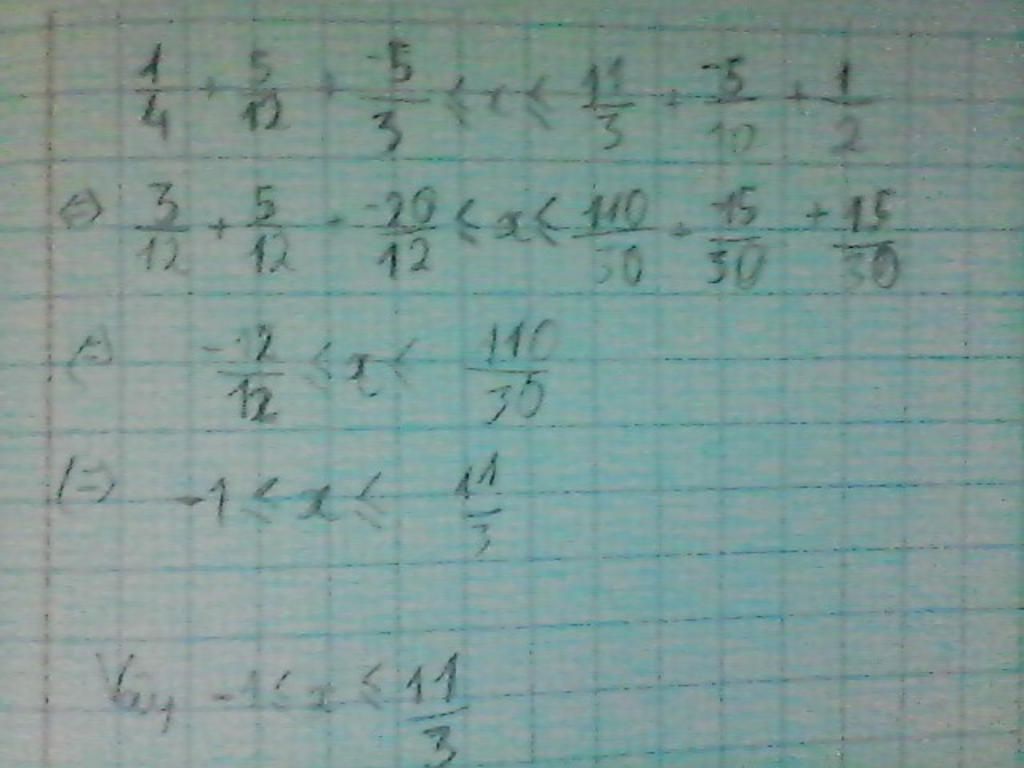 1/4 + 5/12 + -5/3 ≤ x ≤ 11/3 + -5/10 + 1/2
(=) 3/12 + 5/12 + -20/12 ≤ x ≤ 110/30 + -15/30 + 15/30
(=) -12/12 ≤ x ≤ 110/30
(=) -1 ≤ x ≤ 11/3
Vậy -1 ≤ x ≤ 11/3